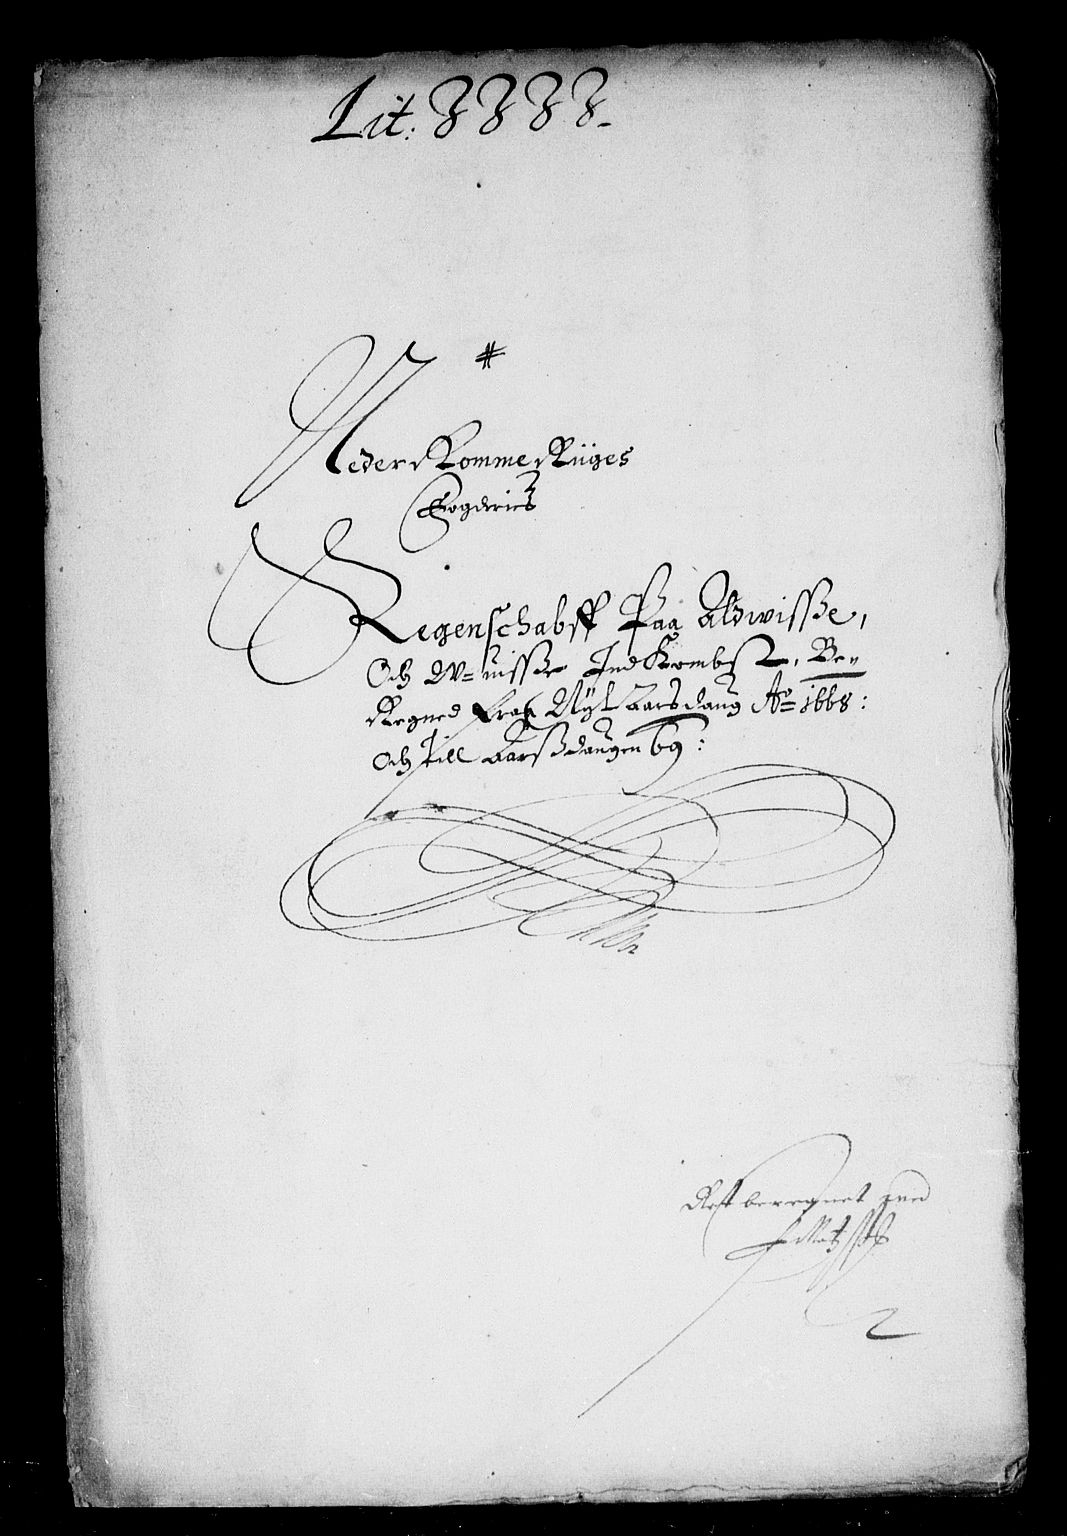 Lit: 3333.
#
Neder Romme Riiges
Fogderies
Regenschabff Paa Aldwisse,
Och W=uisse IndKombst, Be=
Regned fraa Nÿt Aarsdaug Ao 1668:
Och till Aarssdaugen 69:
Rest beregnet